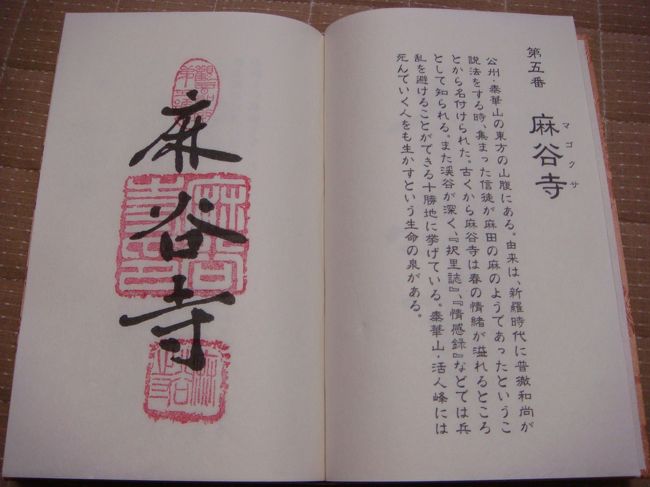 第五番
マゴクサ
麻谷寺
公州・泰華山の東方の山腹にある。由来は、新羅時代に普徹和尚が
説法をする時、集まった信徒が麻田の麻のようであったというこ
とから名付けられた。古くから麻谷寺は春の情緒が溢れるところ
として知られる。また渓谷が深く、『択里誌』、『情感録』などでは兵
乱を避けることができる十勝地に挙げている。泰華山・活人峰には
死んでいく人をも生かすという生命の泉がある。
麻谷寺